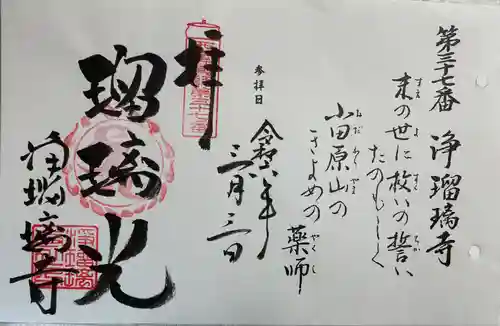 第三十七番 浄瑠璃寺
末の世に救いの誓い
すえ よ すく ちか
たのもしく
小田原山の
おだわらやま
きよめの
薬師
やくし
参拝日
令和六年
三月三日
拝
瑠璃光
浄瑠璃寺